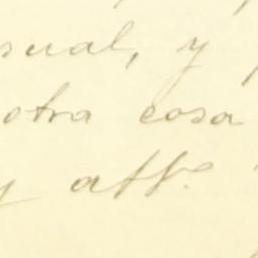 sual, y
otra cosa
y aff.